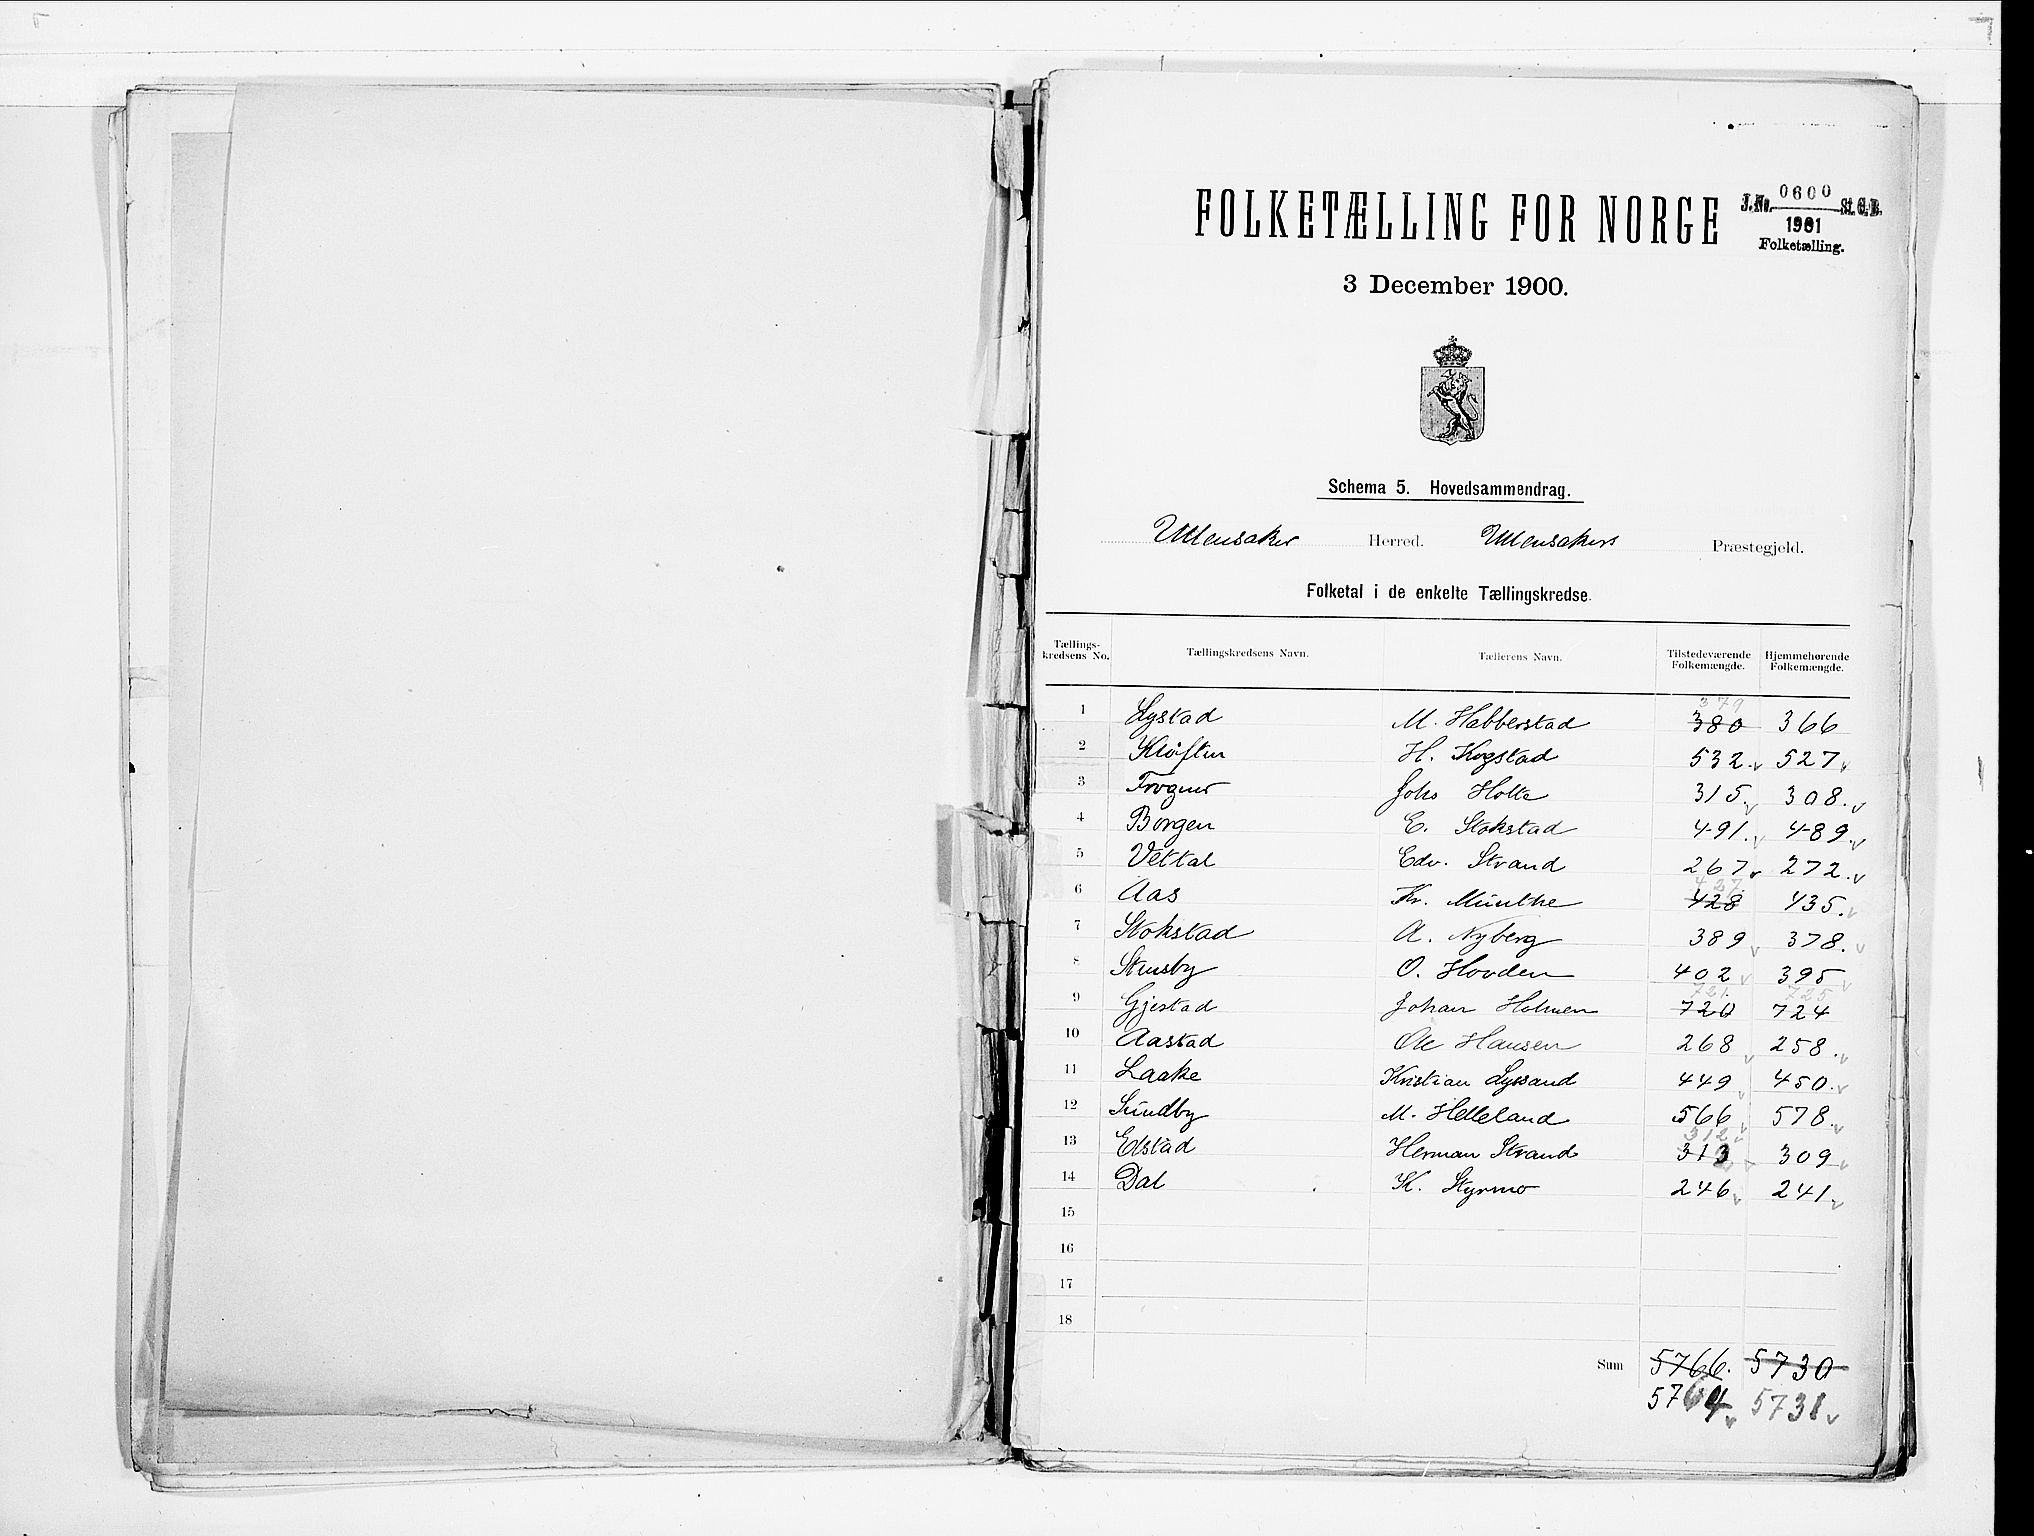 FOLKETÆLLING FOR NORGE
J.No. 0600 St.C.B.
1901
Folketælling.
3 December 1900.
Schema 5. Hovedsammendrag.
Ullensaker Herred. Ullensakers Præstegjeld.
Folketal i de enkelte Tællingskredse.
Tællings-kredsens No. Tællingskredsens Navn. Tællerens Navn. Tilstedeværende Folkemængde. Hjemmehørende Folkemængde.
379
1 Lystad M. Habberstad 380 366
2 Kløften H. Kogstad 532 527
3 Trogner Johs Holte 315. 308.
4 Borgen E. Stokstad 491. 489.
5 Vettal Edv. Strand 267 272.
427
6 Aas Kr. Münthe 428 435.
7 Stokstad A. Nyberg 389 378.
8 Stensby O. Hovden 402 395
721. 725
9 Gjestad Johan Holmen 720 724
10 Aastad Ole Hansen 268 258.
11 Laake Kristian Lyssand 449 450.
12 Sundby M. Helleland 566 578.
312
13 Elstad Herman Strand 313 309
14 Dal K. Styrmo 246 241
15
16
17
18
Sum 5766. 5730
5764 5731